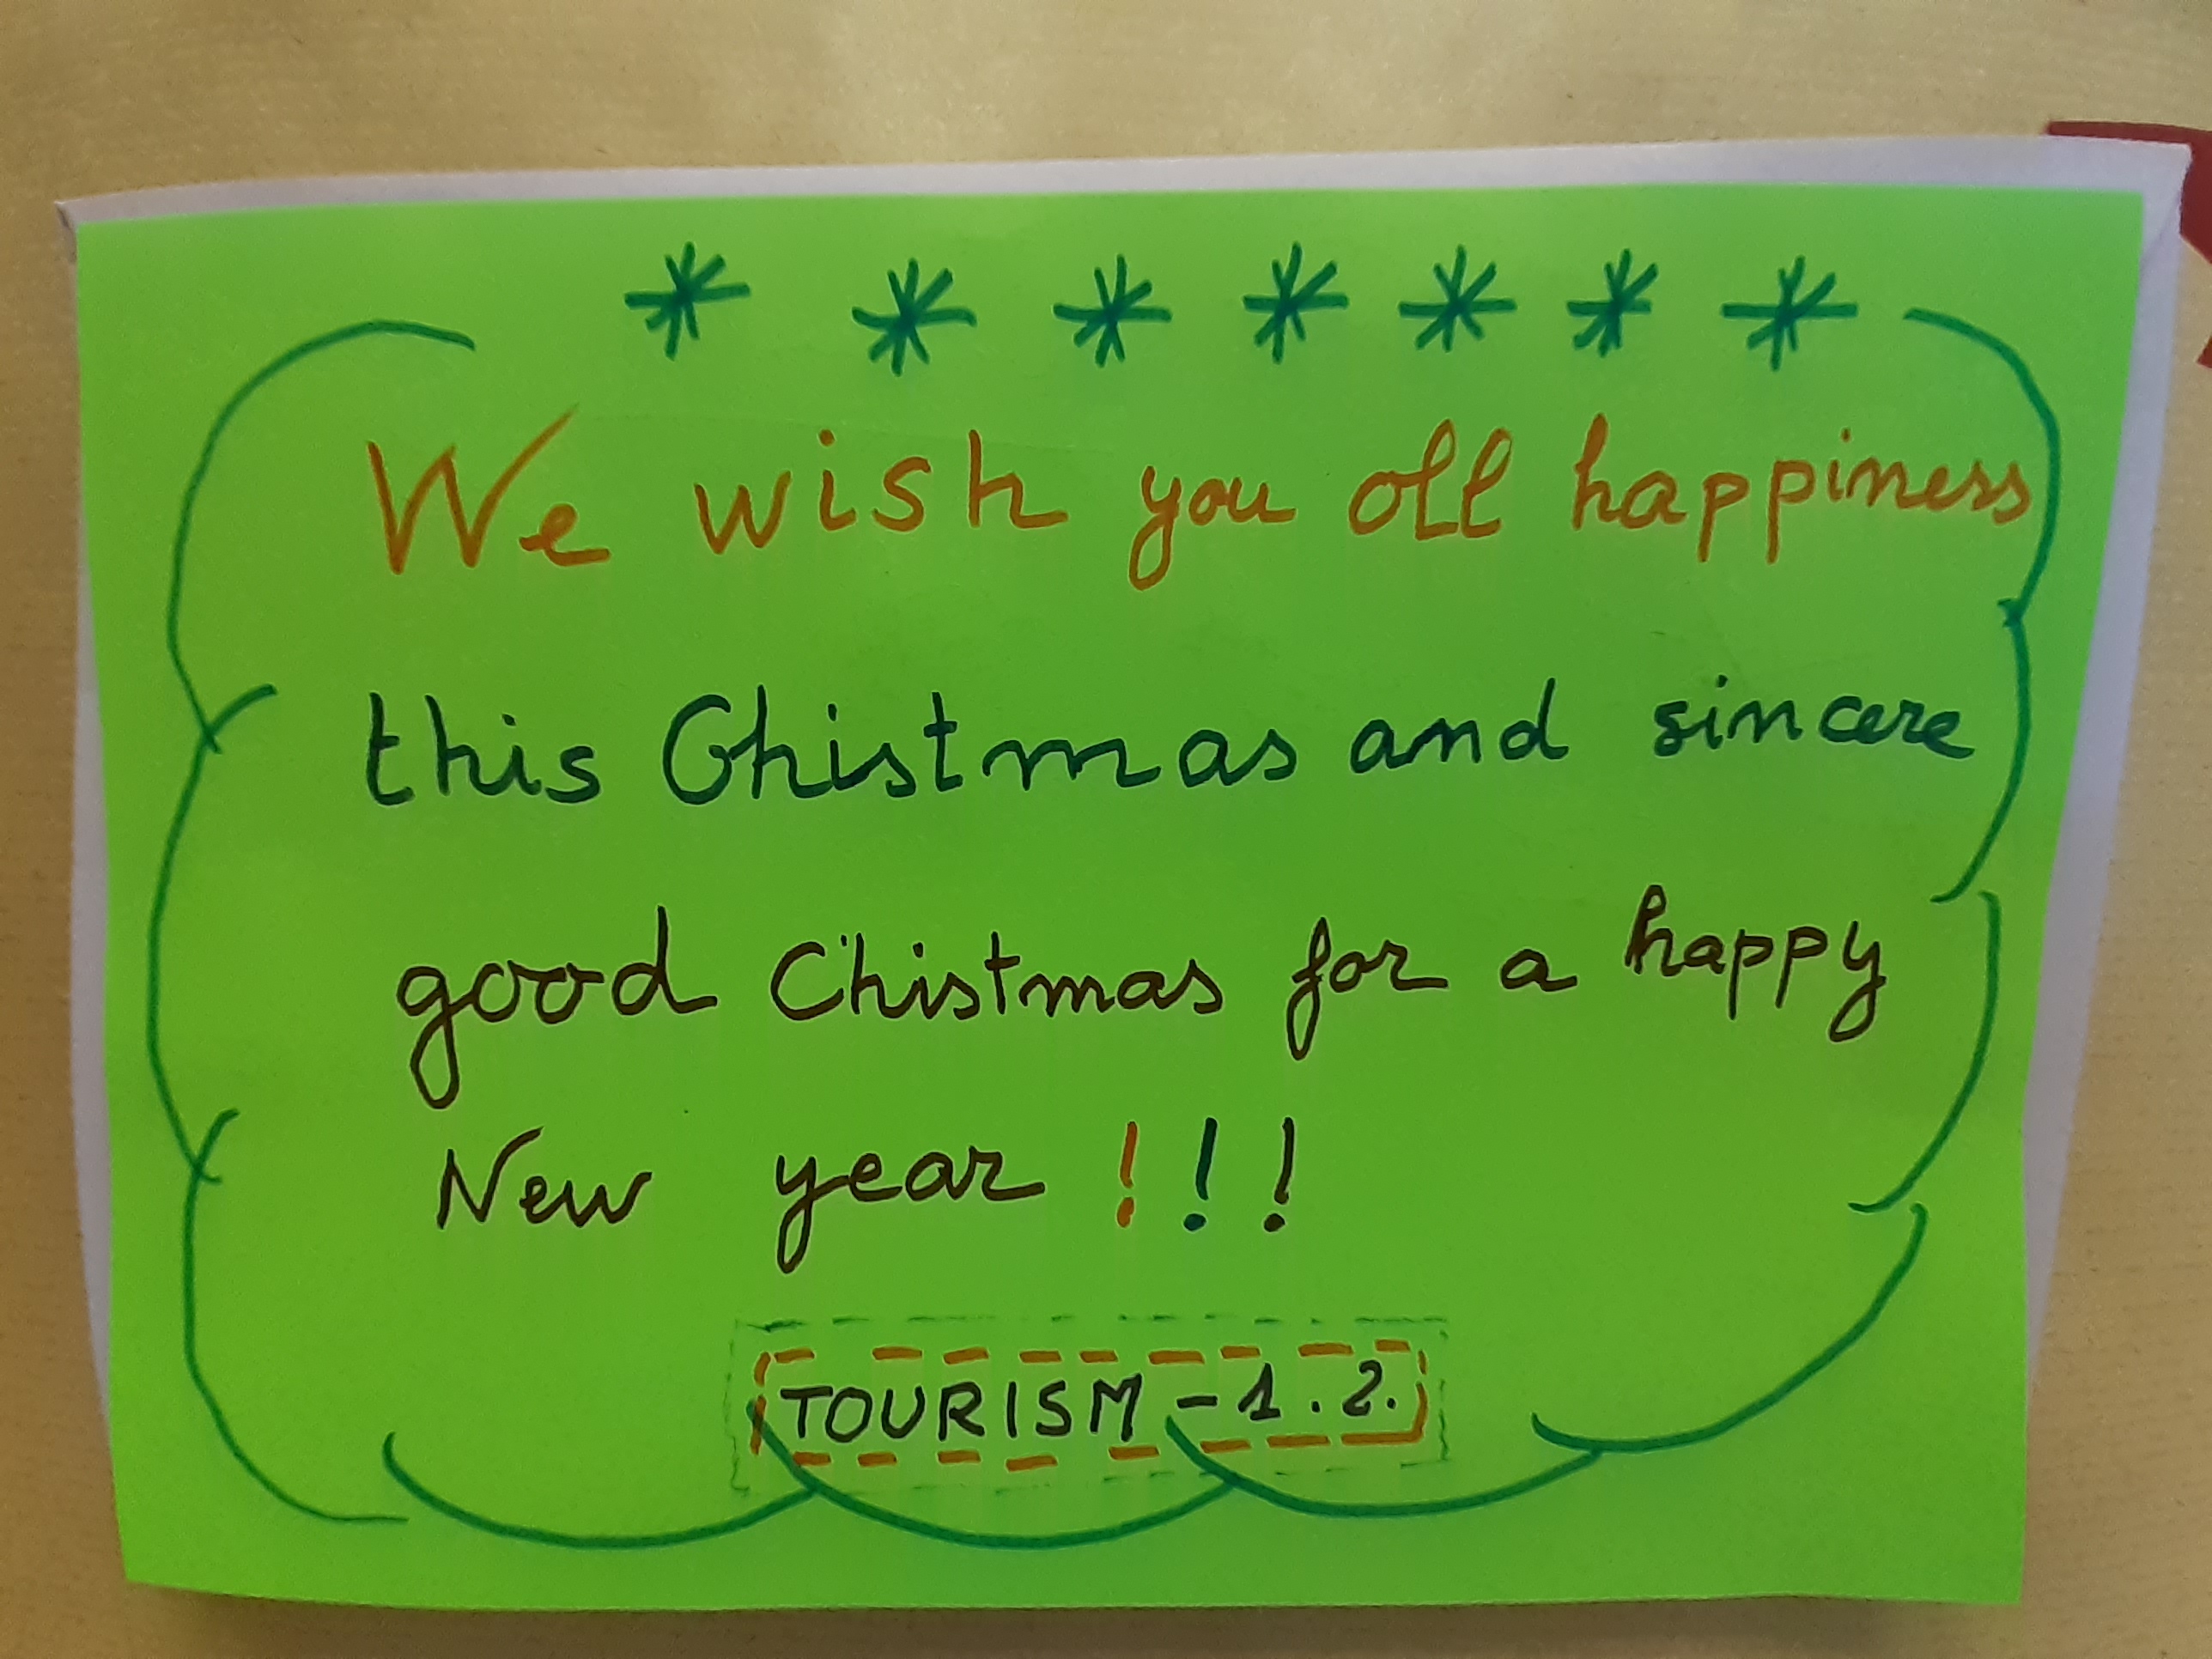 We wish you all happiness
this Christmas and sincere
good Christmas for a happy
New year !!!
TOURISM - 1.2.